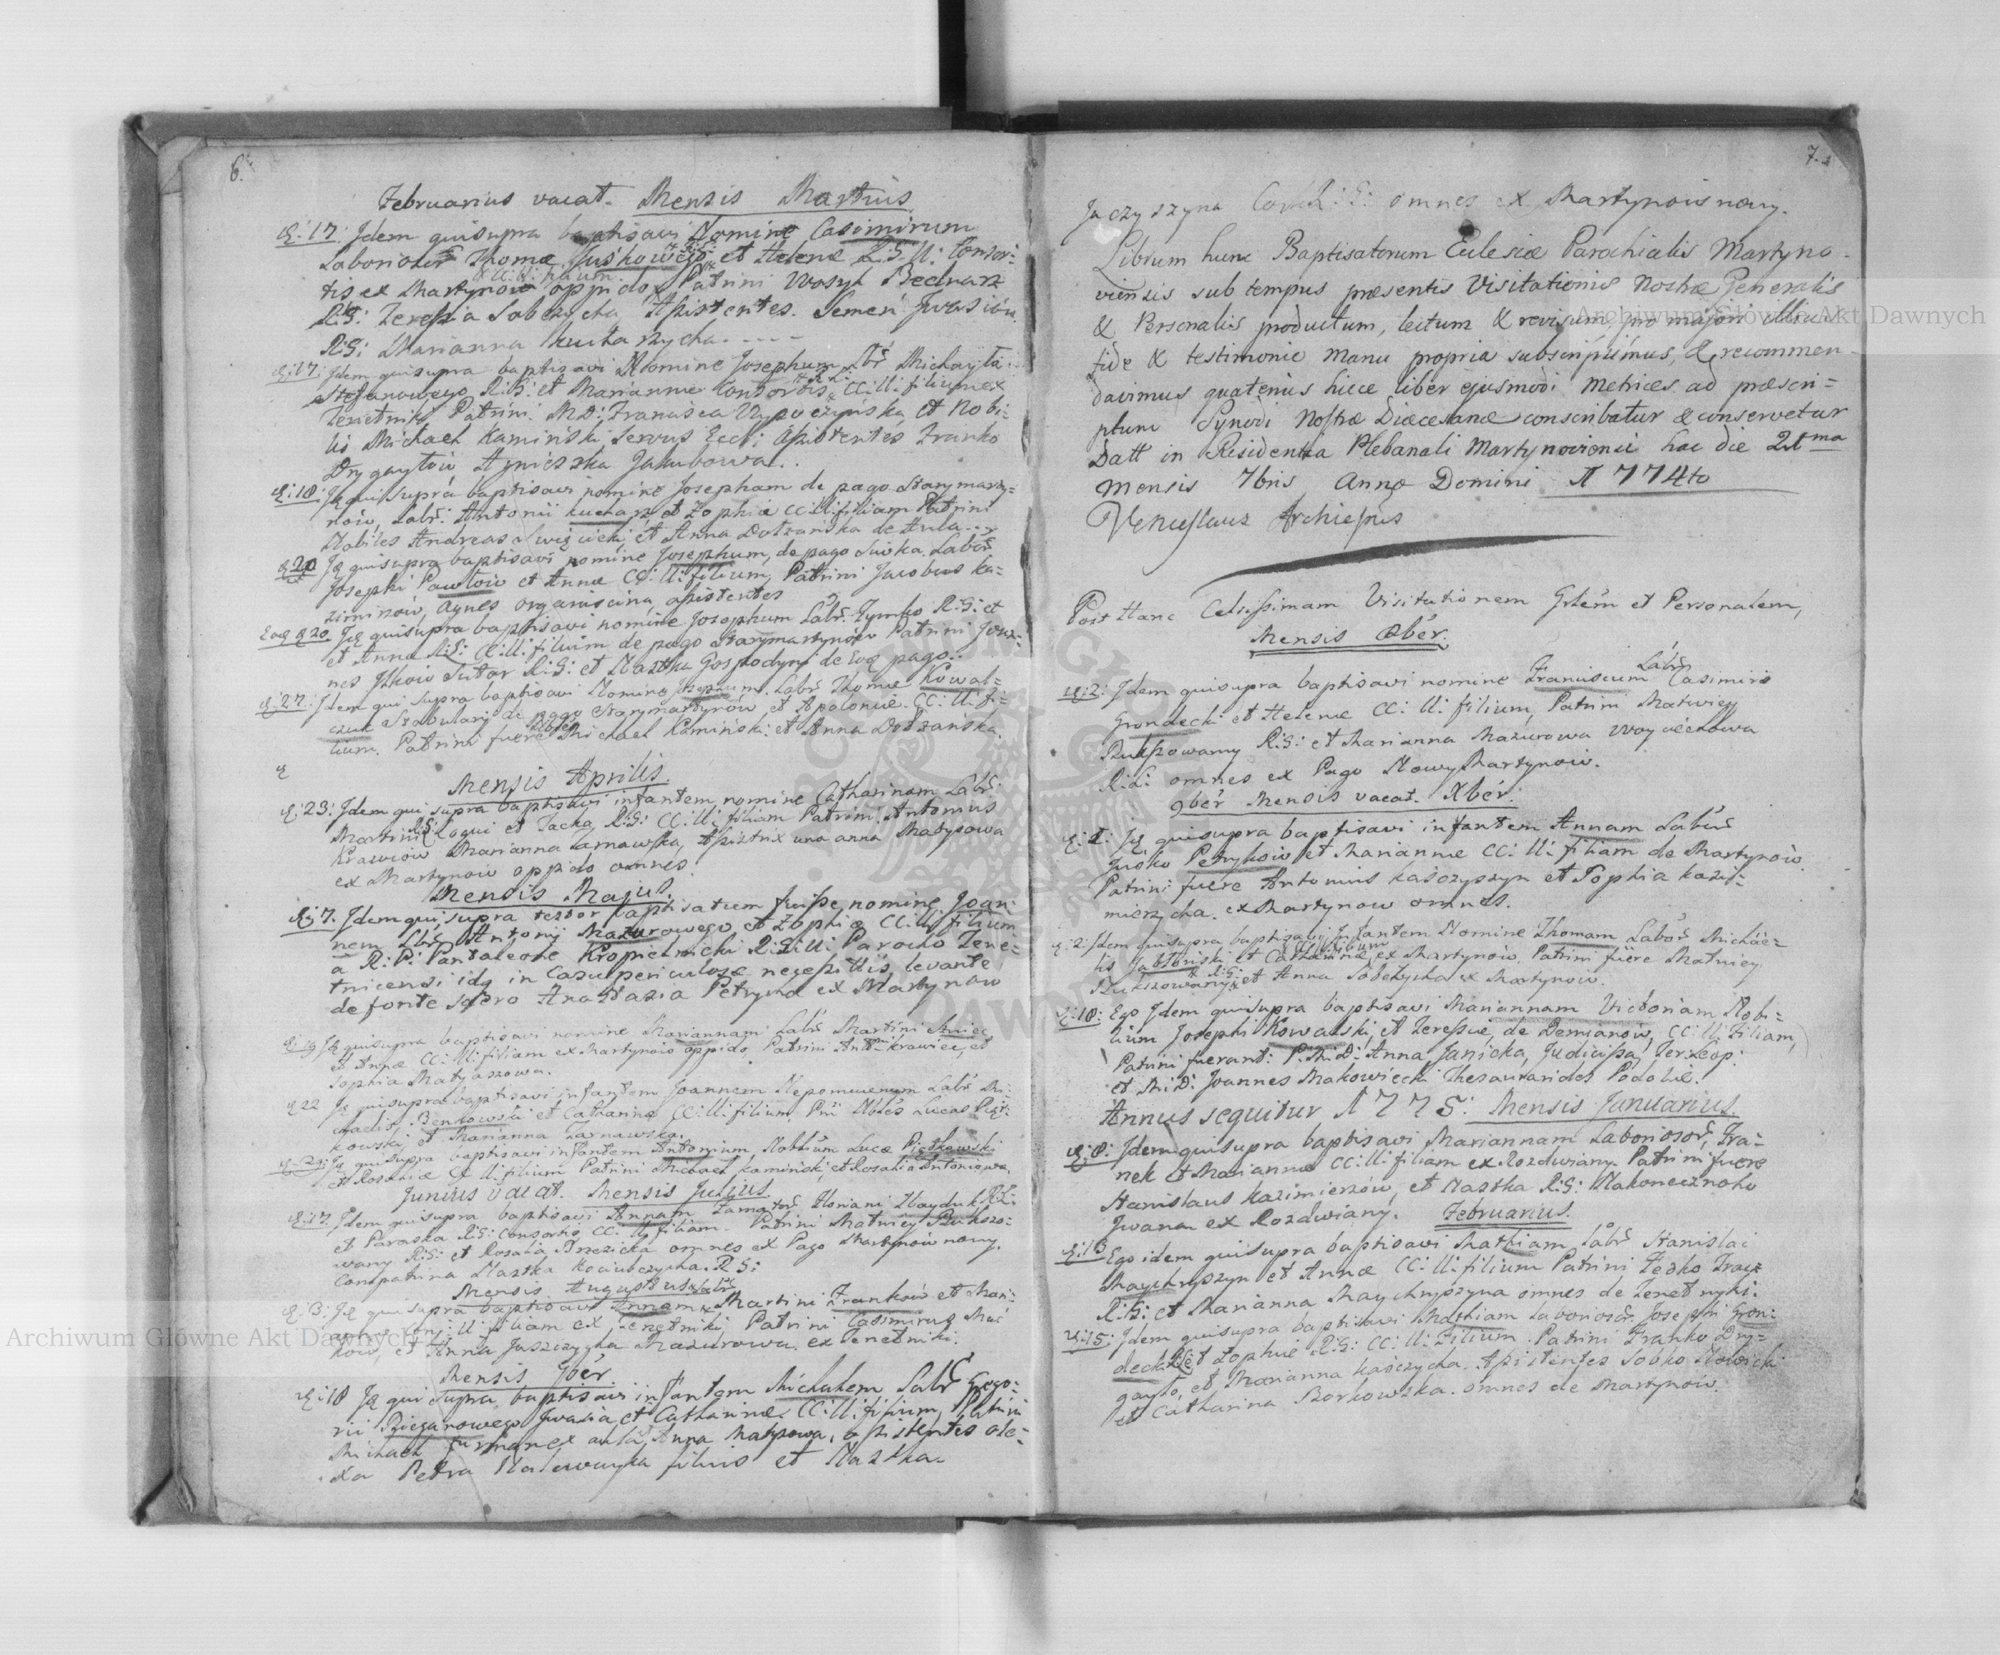 6.
Februarius vacat. Mensis Martius
d: 17: Idem quisupra baptisavi Nomine Casimirum
Laborioser Thomæ Juskowego et Helenæ R:G: ll: Consor-
tis ex Martynow oppido, Patrini Wosyl Bednarz
R:G: Teressia Sobczycha, Assistentes. Semen Iwasiów
R:G: Marianna Kucharzycha. - - - -
d: 17: Idem quisupra baptisavi Nomine Josephum Lbr Michayła
Stefanowego R:G: et Marianne Consortis CC: ll: filium ex
Tenetniki Patrini M:D: Francisca Wypoczyńska et Nobi-
lis Michael Kaminski Servus Eccl: Assistentes Franko
Drygayłow Agnieszka Jakubowa..
d: 18: Ią quisupra baptisavi nomine Josepham de pago Starymarty-
nów, Labr: Antonii Kucharz et Zophiæ CC: ll: filiam Patrini
Nobiles Andreas Swięcicki et Anna Dolzańska de Aula...
d 20 Ią quisupra baptisavi nomine Josephum, de pago Siwka Labor
Josephi Pawłow et Annæ CC: ll: filium, Patrini Jacobus Ka-
zimirzow, Agnes Organiscina, assistentes
Eaq d 20 Ią quisupra baptisavi nomine Josephum Labr: Tymko R:G: et
et Anna R:G: CC: ll: filium de pago Starymartynów Patrini Joan-
nes Jskow Sutor R:G: et Nastka Gospodyni de Eoq pago..
d: 27: Idem qui supra baptisavi Nomine Josephum. Labr Thomæ Kowal-
czuk Stabulary de pago Starymartynów, et Apoloniæ. CC: ll: fi-
lium. Patrini fuere Nobles Michael Kaminski: et Anna Dolzańska.
d
Mensis Aprilis.
d: 23: Idem qui supra baptisavi infantem nomine Catharinam Labr:
Martini R:G: Łogui et Jacka R:G: CC: ll: filiam Patrini: Antonius
Krawiów Marianna Tarnawska, Assistrix una anna Matysowa
ex Martynow oppido omnes.
Mensis Majus.
d: 7. Idem qui supra testor baptisatum fuisse nomine Joan-
nem Lbr: Antonij Mazurowego et Zophiæ CC: ll: filium
a R: P: Pantaleone Kropielnicki R:G: ll: Parocho Tene-
tnicensi idq in Casu periculosæ necessitatis, levante
de fonte sacro Anastazia Petryna ex Martynow
d: 19 Ią quisupra baptisavi nomine Mariannam Labr Martini Szwiec
et Annæ CC: ll: filiam ex Martynow oppido Patrini Anton Krawiec, et
Sophia Matyaszowa.
d 22 Ią quisupra baptisavi infantem Joannem Nepomucenum Labr Mi-
chaelis Benkowski et Catharinæ CC: ll: filium, Pni Nobles Lucas Piąt-
kowski, et Marianna Tarnawska.
d: 24: Ią quisupra baptisavi infantem Antonium, Nobilium Lucæ Piątkowski
et Rosaliæ CC ll: filium Patrini Michael Kaminski, et Rosalia Antoniowa.
Junius vacat. Mensis Julius
d: 17. Idem quisupra baptisavi Annam Famator Floriani Hayduk R:L:
et Paraska R:G: Consortis CC: ll: filiam. Patrini Matwiey Bukszo-
wany R:G: et Rosalia Brzezicka omnes ex Pago Martynów nowy.
Compatrina Nastka Kociubczycha. R G:
Mensis Augustus
d: 3: Ią quisupra baptisavi Annam Martini Franków et Mari-
annæ CC: ll: filiam ex Tenetniki, Patrini Casimirus Mać
ków, et Anna Jaszczyka Mazurowa. ex Tenetniki.
Mensis 7ber.
d: 18 Ią qui supra baptisavi infantem Michalem Labr Grego-
rii Bieganowego Iwasia et Catharinæ CC: ll: filium, Patrini
Michael Furman ex aula, Anna Matysowa, assistentes Ole-
xa Petra Malewanyka filius et Nastka.
7.
Jaczyszyna R: G: omnes ex Martynow nowy.
Librum hunc Baptisatorum Ecclesiæ Parochialis Martyno-
viensis sub tempus præsentis Visitationis Nostræ Generalis
& Personalis productum, lectum & revisum, pro majori illius
fide & testimonio manu propria subscripsimus, & recommen-
davimus quatenus hicce liber ejusmodi Metrices ad præscri-
ptum Synodi Nostræ Diæcesanæ conscribatur & conservetur
Datt in Residentia Plebanali Martynoviensi hac die 21ma
Mensis 7bris Anno Domini 1774to
Venceslaus Archieppus
Post Hanc Celsissimam Visitationem Grlem et Personalem,
Mensis 8ber.
d: 2: Idem quisupra baptisavi nomine Franciscum Labr Casimiri
Grondecki et Helenæ CC: ll: filium, Patrini Matwiey
Bukszowany R:G: et Marianna Mazurowa Woyciechowa
R:L: omnes ex Pago Nowy Martynow.
9ber Mensis vacat. Xber:
d: 1: Ią quisupra baptisavi infantem Annam Labris
Jusko Petryków et Mariannæ CC: ll: filiam de Martynow.
Patrini fuere Antonius Kasczyszyn et Sophia Kazi-
mierzycha. ex Martynow omnes.
d: 2: Idem quisupra baptisavi Infantem Nomine Thomam Labos Michae-
lis Jabłoński et Catharinæ CC: ll: filium ex Martynow. Patrini fuere Matwiey
Bukszowany R:G: et Anna Sobczycha ex Martynow.
d: 10: Ego Idem quisupra baptisavi Mariannam Victoriam Nobi-
lium Josephi Kowalski et Teressiæ, de Demianów, CC: ll: Filiam,
Patrini fuerant: P. M: D: Anna Janicka, Judicissa Terreop:
et M: D: Joannes Makowiecki Thesaurarides Podolie.
Annus sequitur 1775: Mensis Januarius.
d: 8: Idem quisupra baptisavi Mariannam Laboriosor, Fra-
nek et Mariannæ CC: ll: filiam ex Rozdwiany Patrini fuere
Stanislaus Kazimierzów, et Nastka R:G: Nakonecznoho
Iwana ex Rozdwiany. Februarius.
d: 13 Ego idem quisupra baptisavi Mathiam, Labr Stanislai
Maychryszyn et Annæ CC: ll: filium Patrini Fesko Tracz
R:G: et Marianna Maychryszyna omnes de Tenetnyki.
d: 15: Idem quisupra baptisavi Mathiam Laborioso: Josephi Gron-
decki et Zophiæ R:G: CC: ll: Filium. Patrini Franko Dry-
gayło, et Marianna Kasczycha. Assistentes Sobko Nowicki
et Catharina Borkowska. omnes de Martynow.
Archiwum Główne Akt Dawnych
Archiwum Główne Akt Dawnych